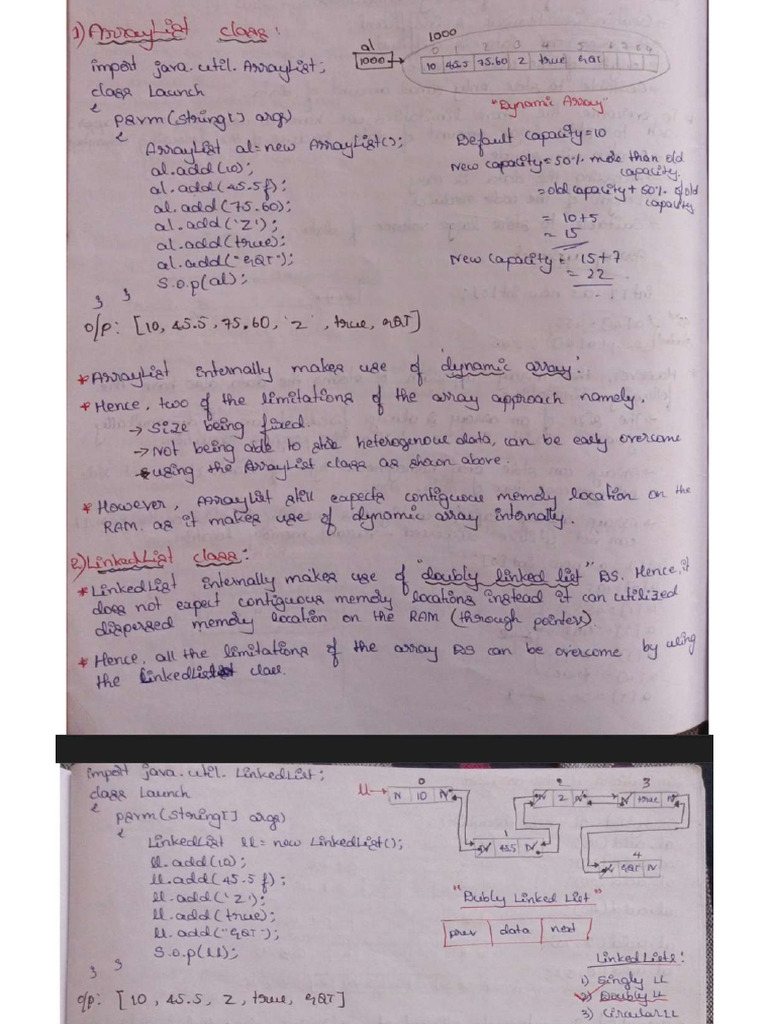 1) ArrayList class:
import java.util.ArrayList;
class Launch
{
psvm(String[] args)
{
ArrayList al=new ArrayList();
al.add(10);
al.add(45.5f);
al.add(75.60);
al.add('Z');
al.add(true);
al.add("GQT");
S.o.p(al);
} }
al
1000
1000
0 1 2 3 4 5 6 7 8 9
10 45.5 75.60 Z true GQT
"Dynamic Array"
Default capacity=10
New capacity=50% more than old
capacity.
=old capacity + 50% of old
capacity
= 10+5
= 15
New capacity = 15+7
= 22
o/p: [10, 45.5, 75.60, 'Z', true, GQT]
* ArrayList internally makes use of 'dynamic array'.
* Hence, two of the limitations of the array approach namely,
→ Size being fixed.
→ Not being able to store heterogenous data, can be easily overcome
using the ArrayList class as shown above.
* However, ArrayList still expects contiguous memory location on the
RAM. as it makes use of dynamic array internally.
2) LinkedList class:
* LinkedList internally makes use of "doubly linked list" DS. Hence, it
does not expect contiguous memory locations instead it can utilized
dispersed memory location on the RAM (through pointers).
* Hence, all the limitations of the array DS can be overcome by using
the LinkedList class.
import java.util.LinkedList;
class Launch
{
psvm(String[] args)
{
LinkedList ll = new LinkedList();
ll.add(10);
ll.add(45.5f);
ll.add('Z');
ll.add(true);
ll.add("GQT");
S.o.p(ll);
} }
o/p: [10, 45.5, Z, true, GQT]
ll→
0
N 10 N
1
N 45.5 N
2
N Z N
3
N true N
4
N GQT N
"Dubly Linked List"
prev data next
Linked Lists:
1) Singly LL
2) Doubly LL
3) Circular LL